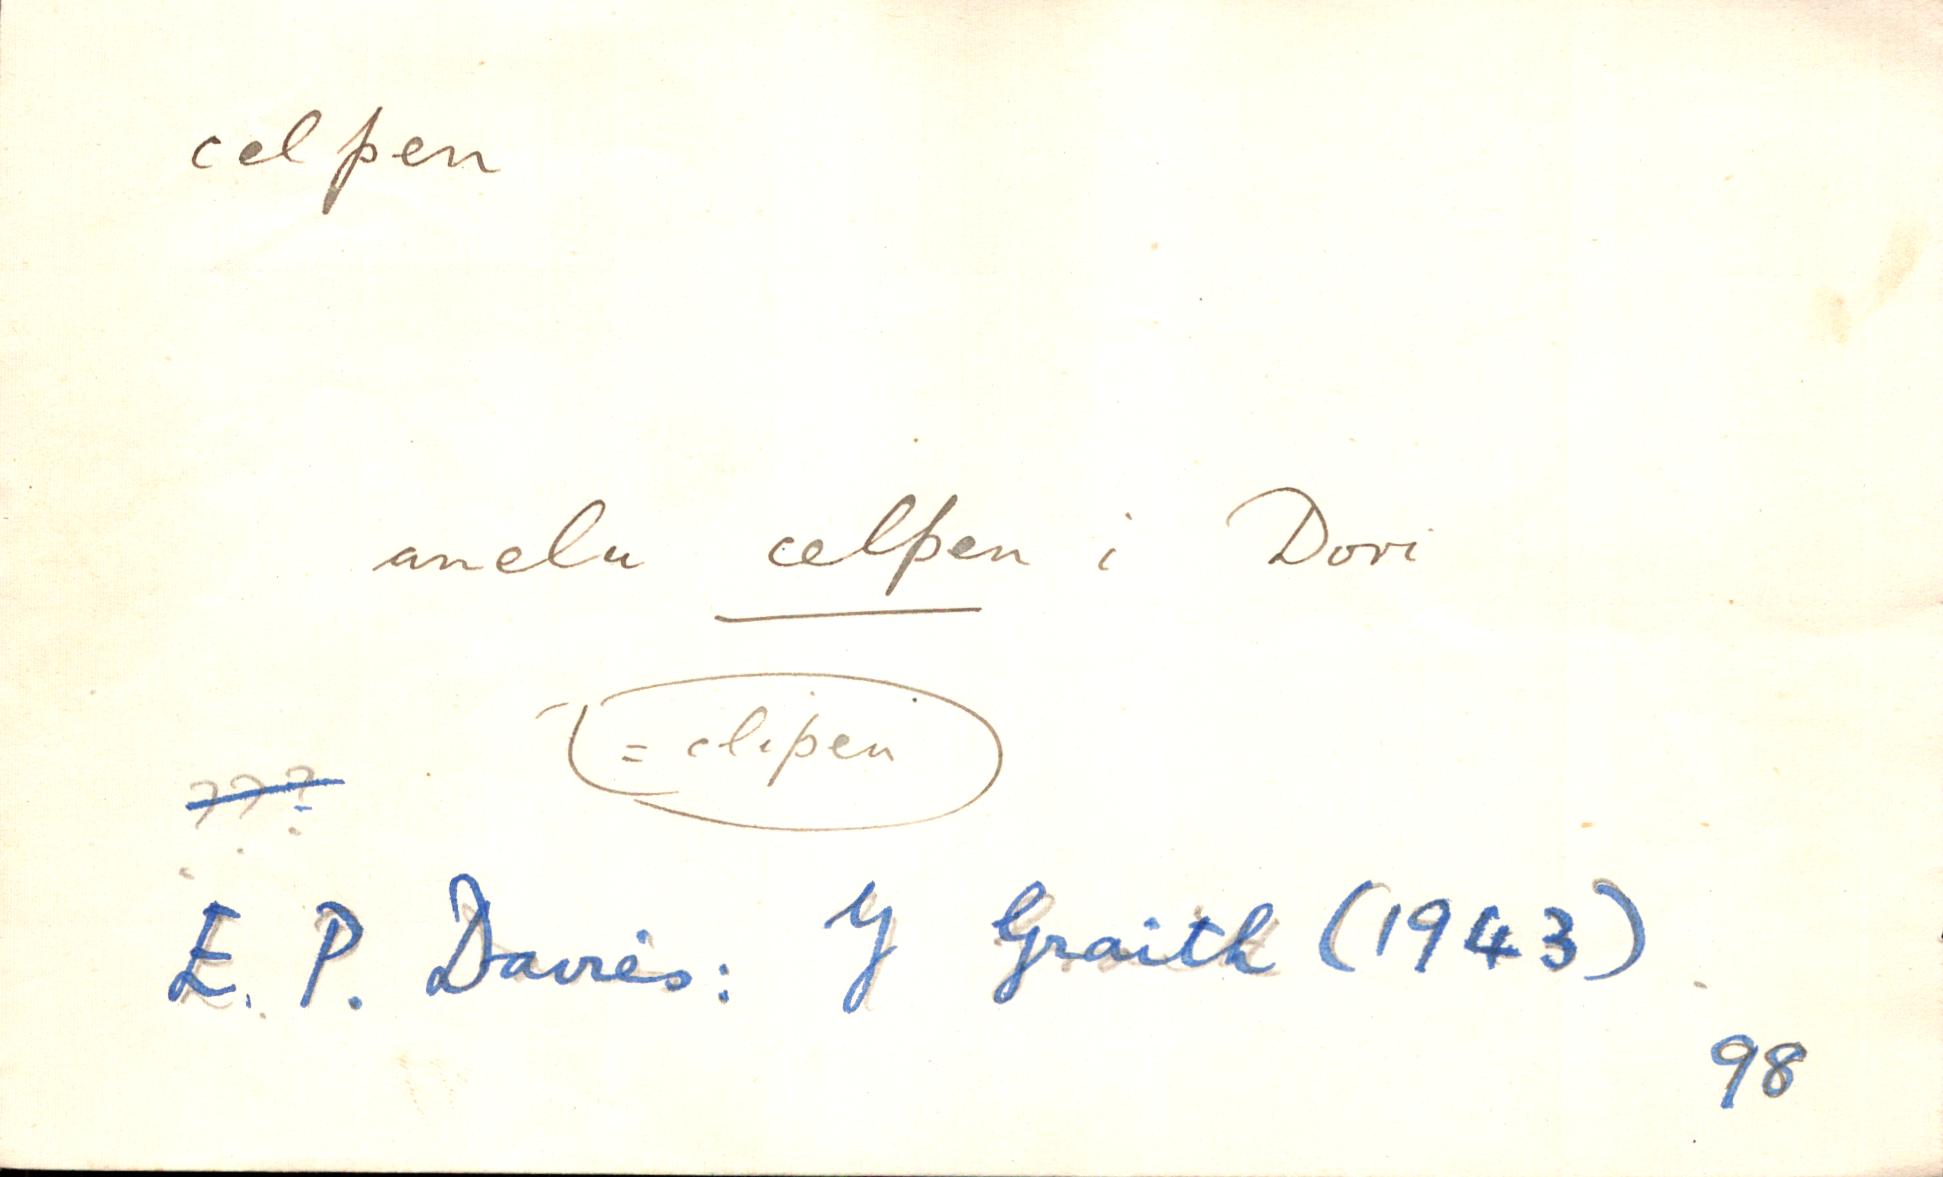 celpen
anelu celpen i Dori
= clipen
???
E. P. Davies: Y Graith (1943)
98